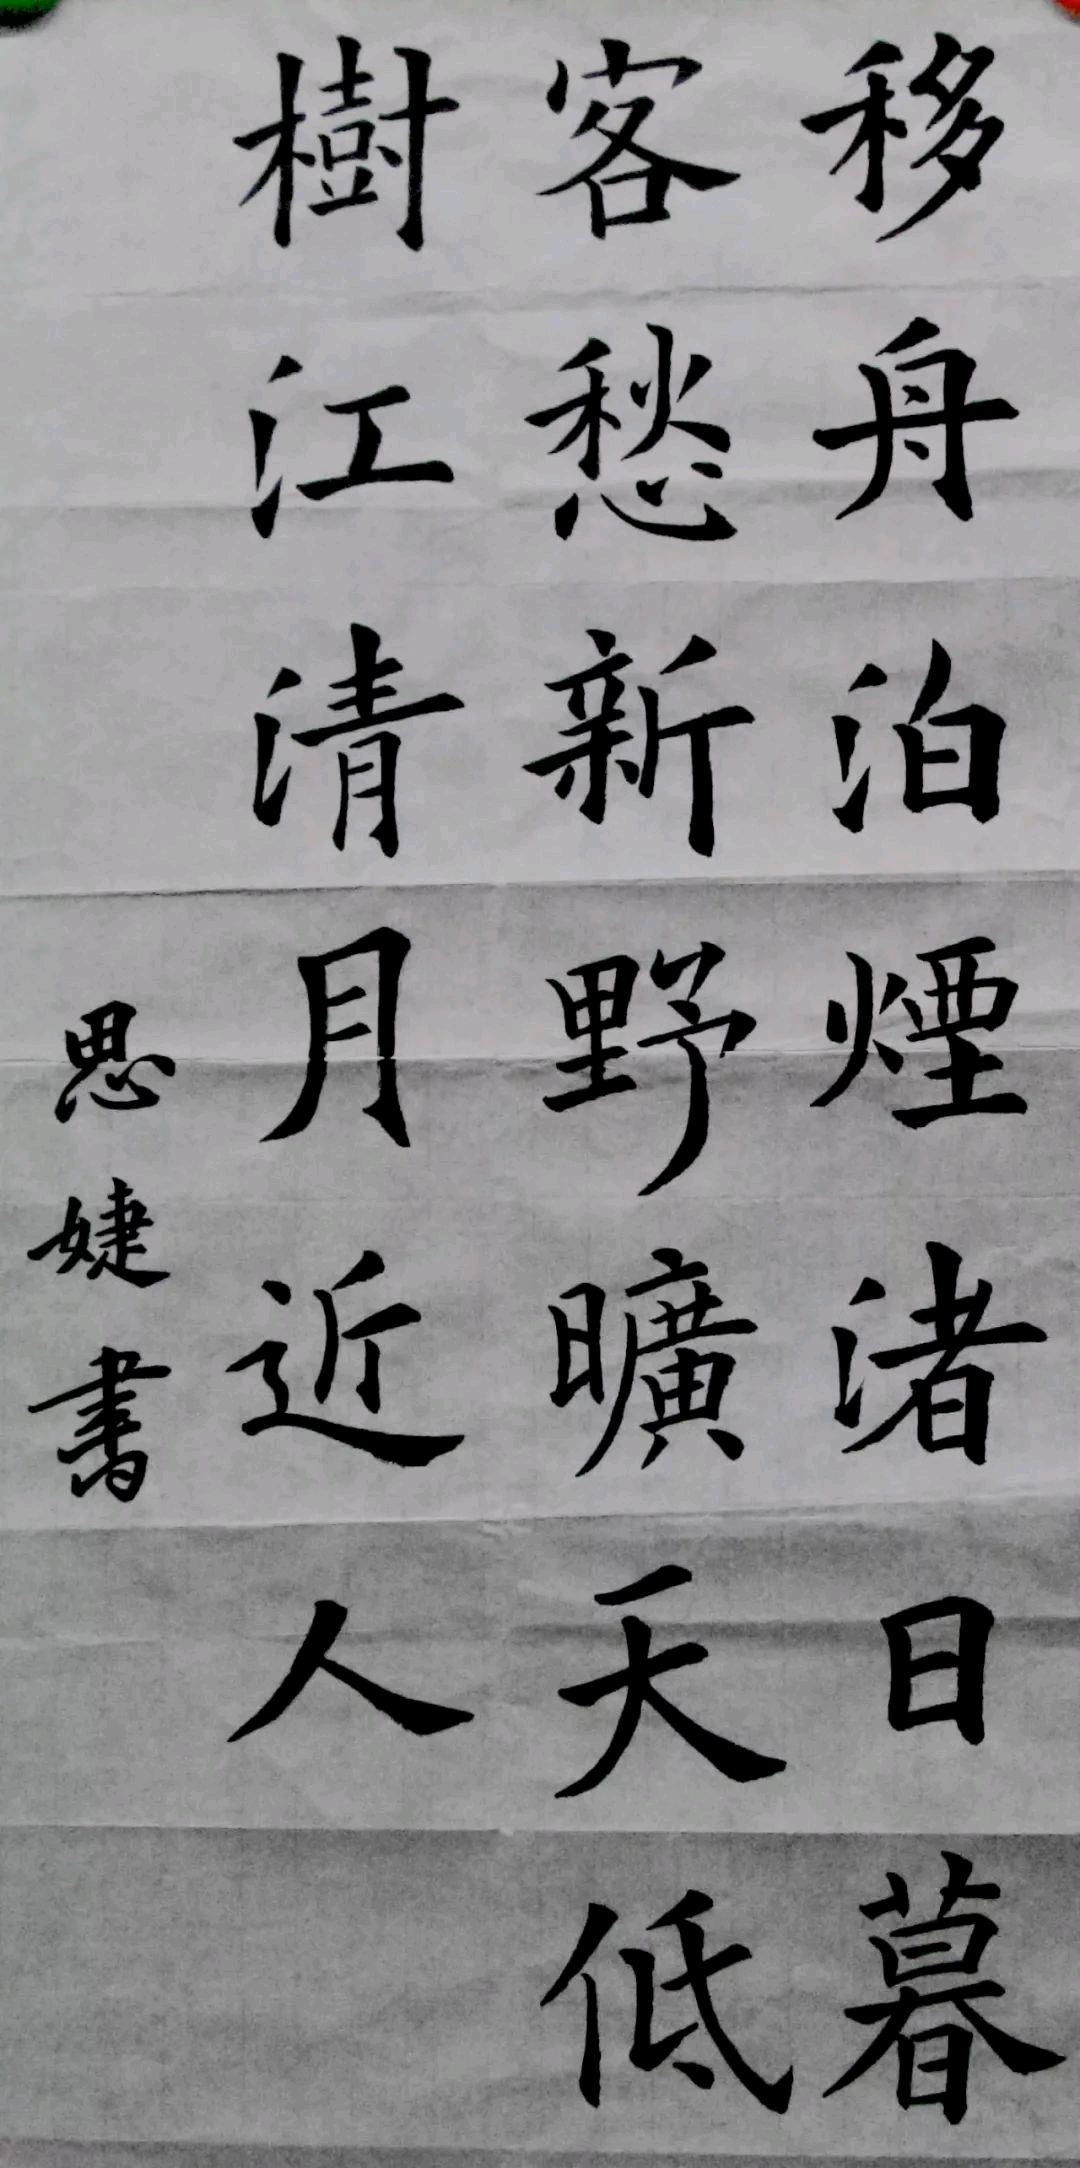 移舟泊煙渚日暮
客愁新野曠天低
樹江清月近人
思婕書